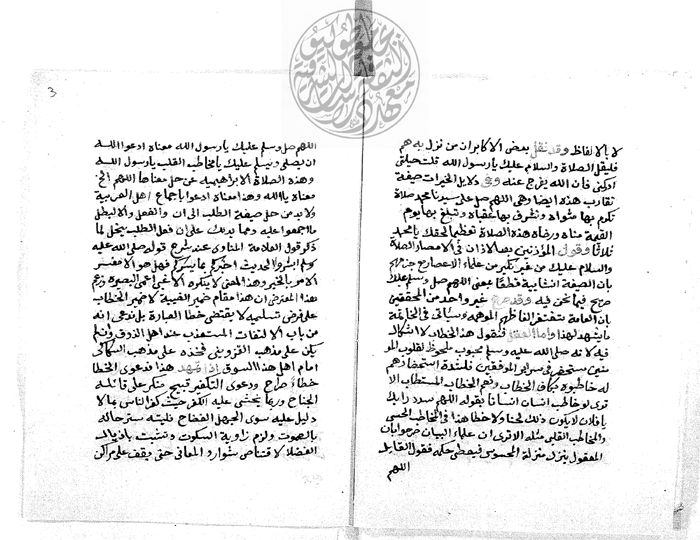 لا بالالفاظ وقد نقل بعض الاكابر ان من نزل به هم
فليقل الصلاة والسلام عليك يا رسول الله قلت حيلتي
ادركني فان الله يفرج عنه وفي دلايل الخيرات صيغة
تقارب هذه ايضا وهي اللهم صل على سيدنا محمد صلاة
تكرم بها مثواه وتشرف بها عقباه وتبلغ بها يوم
القيمة مناه ورضاه هذه الصلاة تعظيما لحقك يا محمد
ثلاثا وقول المؤذنين بعد الاذان في الامصار الصلاة
والسلام عليك من غير نكير من علماء الاعصار مع جزمهم
بان الصيغة انشايية قطعا بمعنى اللهم صل وسلم عليك
صريح فيما نحن فيه وقد صرح غير واحد من المحققين
بان العامة تغتفر الفاظهم الموهمه وسياتي في الخاتمة
ما يشهد لهذا واما العقلي فنقول هذا الخطاب لا اشكال
فيه لانه صلى الله عليه وسلم محبوب ملحوظ لقلوب المو
منين مستحضر في سراير الموفقين فلشدة استحضارهم
له خاطبوه بكاف الخطاب ونعم الخطاب المستطاب الا
ترى لو خاطب انسان انسانا بقوله اللهم سدد رايك
يا فلان لا يكون ذلك لحنا ولا خطا هذا في المخاطب الحسي
والمخاطب القلبي مثله الا ترى ان علماء البيان صرحوا بان
المعقول ينزل منزلة المحسوس فيعطى حكمه فقول القايل
اللهم
3
اللهم صل وسلم عليك يا رسول الله معناه ادعوا الله
ان يصلي ويسلم عليك يا مخاطب القلب يا رسول الله
وهذه الصلاة الابراهيميه عن حل معناها اللهم الخ
معناه يا الله وهذا معناه ادعوا باجماع اهل العربية
ولا بد من حل صيغة الطلب الى ان والفعل والا لبطل
ما اجمعوا عليه ومما يدلك على ان فعل الطلب ينحل لما
ذكر قول العلامة المناوي عند شرح قوله صلى الله عليه
وسلم ابشروا الحديث اخبركم بما يسركم فهل هو الا مفسر
الامر بالخبر وهذا المعنى لا ينكره الا غبي اعمى البصيره وزعم
هذا المعترض ان هذا مقام ضمير الغيبة لا ضمير الخطاب
على فرض تسليمه لا يقتضي خطا العبارة بل ندعي انه
من باب الالتفات المستعذب عند اهل الذوق وان لم
يكن على مذهب القزويني فخذه على مذهب السكاكي
امام اهل هذا السوق اذا تمهد هذا فدعوى الخطا
خطاء صراح ودعوى التكفير قبيح منكر على قائله
الجناح وربما يخشى عليه الكفر حيث كفر الناس بما لا
دليل عليه سوى الجهل الفضاح فليته ستر حاله
بالصموت ولزم زاوية السكوت وتشبث باذيال
الفضلا لاقتناص شوارد المعاني حتى يقف على مراكز